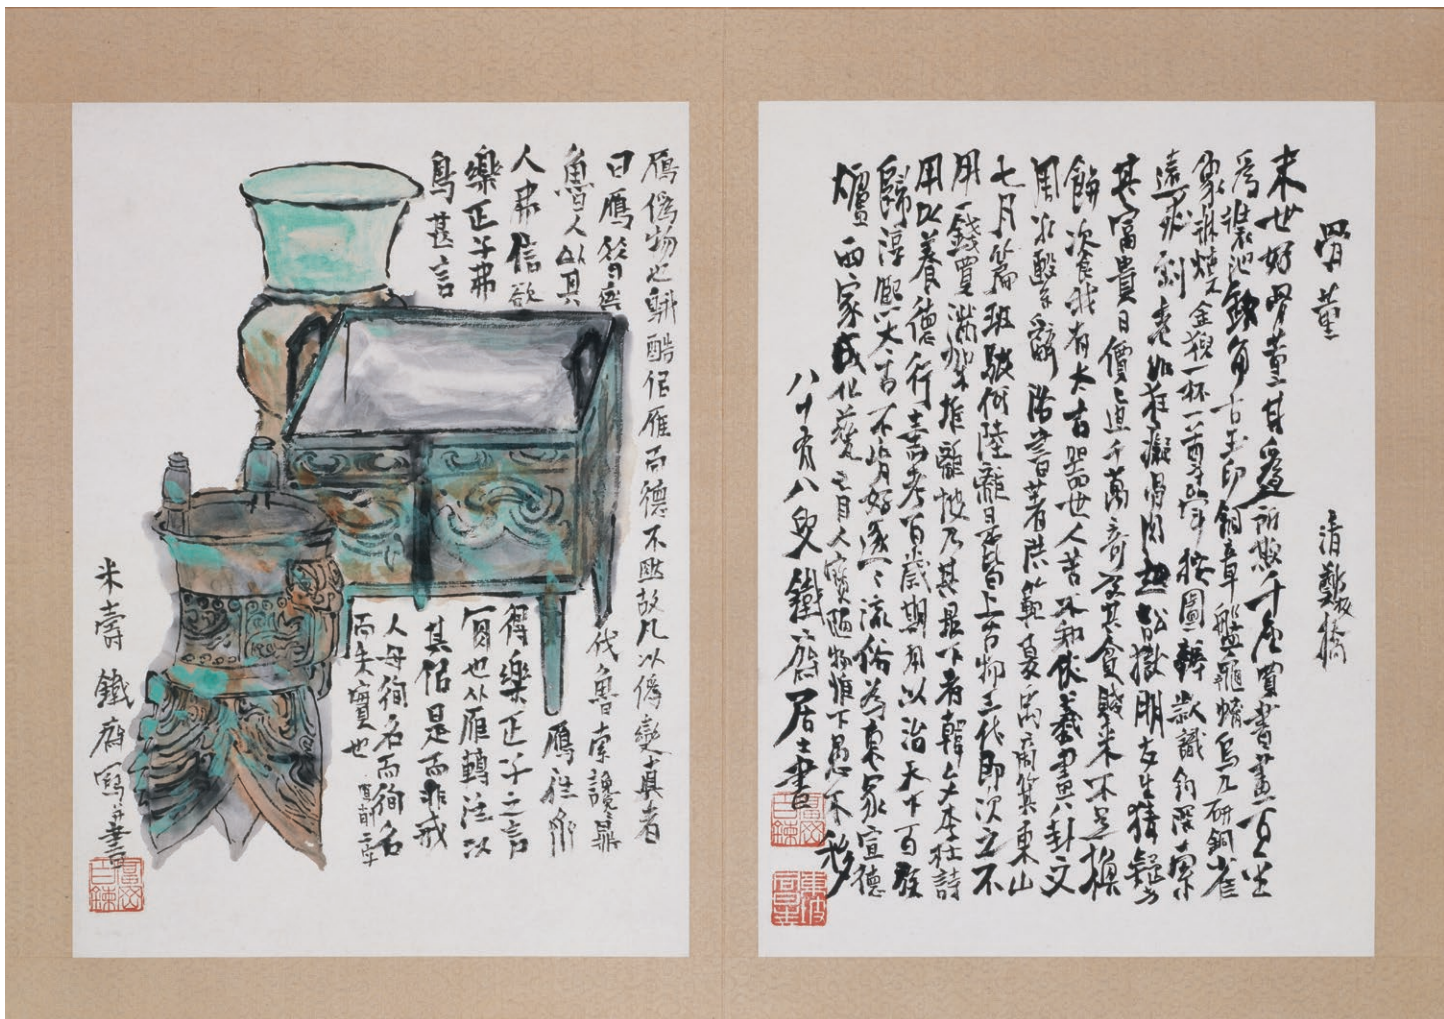 骨董　清鄭板橋
末世好骨董甘為人所欺千金買書畫百金
為裝池缺角古玉印銅章盤龜螭烏几研銅雀
象床燒金猊一杯一尊斝按圖辯款識鈎深索
遠求到老如狂癡骨肉起訟獄朋友生猜疑方
其富貴日價直千萬奇及其貧賤來不足換
餅　我有大古器世人苦不知伏羲畫八卦文
周孔繫辭洛書著洪範夏禹商箕東山
七月篇斑駁何陸離是皆上古物三代即次之不
用一錢買滿架堆離披乃其最下者韓文李杜詩
用以養德行壽考百歲期用以治天下百族
歸淳熙大古不肯好逐々流俗為東家宣德
爐西家成化瓷盲人寶陋物惟下愚不移
八十有八叟鐵齋居士書
鴈偽物也　酷佀雁而德不　故凡以偽變真者
曰鴈　齊伐魯索讒鼎
魯人以其鴈往齊
人弗信欲得樂正子之言
樂正子弗　也从雁轉注以
鳥甚言其佀是而非戒
人毋徇名而徇名
而失實也
米壽鐵齋寫并書